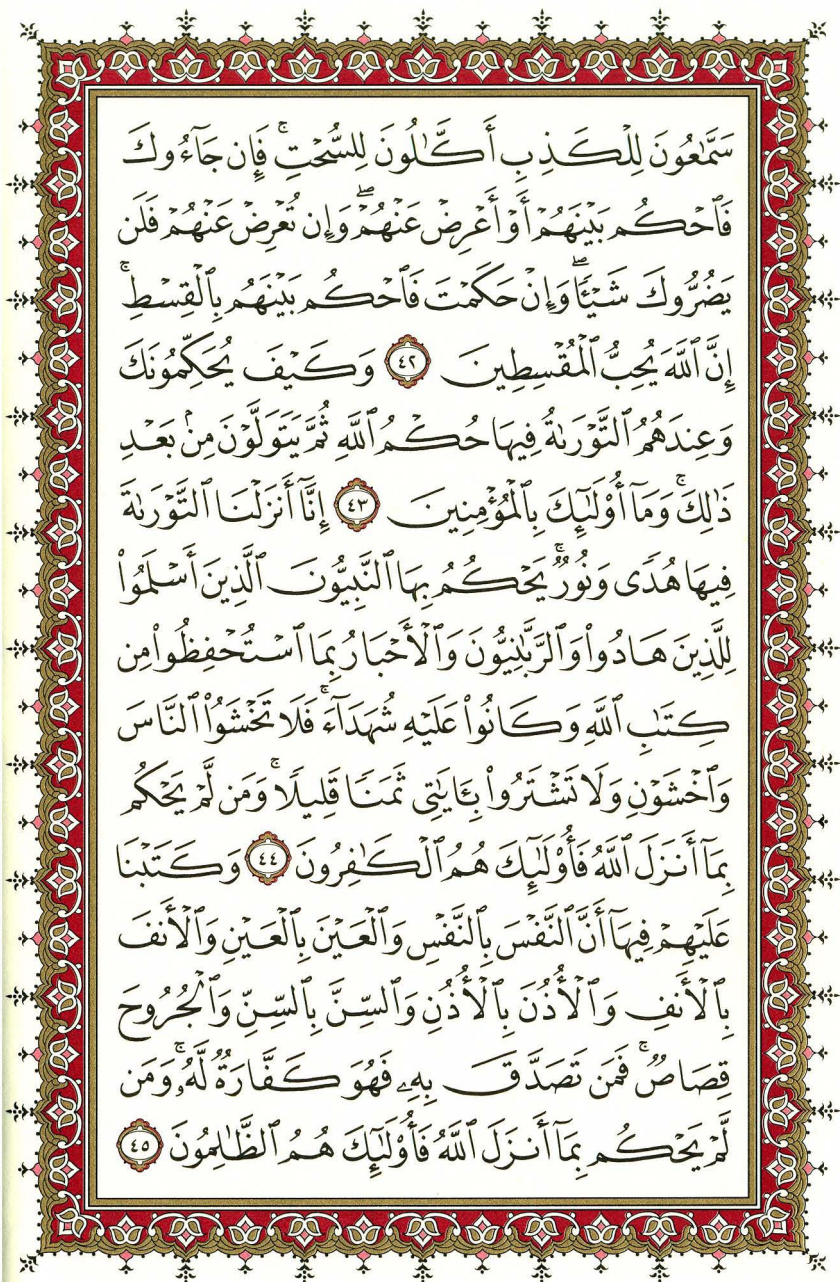 سَمَّٰعُونَ لِلْكَذِبِ أَكَّٰلُونَ لِلسُّحْتِۚ فَإِن جَآءُوكَ
فَٱحْكُم بَيْنَهُمْ أَوْ أَعْرِضْ عَنْهُمْۖ وَإِن تُعْرِضْ عَنْهُمْ فَلَن
يَضُرُّوكَ شَيْـًٔاۖ وَإِنْ حَكَمْتَ فَٱحْكُم بَيْنَهُم بِٱلْقِسْطِۚ
إِنَّ ٱللَّهَ يُحِبُّ ٱلْمُقْسِطِينَ ٤٢ وَكَيْفَ يُحَكِّمُونَكَ
وَعِندَهُمُ ٱلتَّوْرَىٰةُ فِيهَا حُكْمُ ٱللَّهِ ثُمَّ يَتَوَلَّوْنَ مِنۢ بَعْدِ
ذَٰلِكَۚ وَمَآ أُو۟لَٰٓئِكَ بِٱلْمُؤْمِنِينَ ٤٣ إِنَّآ أَنزَلْنَا ٱلتَّوْرَىٰةَ
فِيهَا هُدًى وَنُورٌۚ يَحْكُمُ بِهَا ٱلنَّبِيُّونَ ٱلَّذِينَ أَسْلَمُوا۟
لِلَّذِينَ هَادُوا۟ وَٱلرَّبَّٰنِيُّونَ وَٱلْأَحْبَارُ بِمَا ٱسْتُحْفِظُوا۟ مِن
كِتَٰبِ ٱللَّهِ وَكَانُوا۟ عَلَيْهِ شُهَدَآءَۚ فَلَا تَخْشَوُا۟ ٱلنَّاسَ
وَٱخْشَوْنِ وَلَا تَشْتَرُوا۟ بِـَٔايَٰتِى ثَمَنًا قَلِيلًاۚ وَمَن لَّمْ يَحْكُم
بِمَآ أَنزَلَ ٱللَّهُ فَأُو۟لَٰٓئِكَ هُمُ ٱلْكَٰفِرُونَ ٤٤ وَكَتَبْنَا
عَلَيْهِمْ فِيهَآ أَنَّ ٱلنَّفْسَ بِٱلنَّفْسِ وَٱلْعَيْنَ بِٱلْعَيْنِ وَٱلْأَنفَ
بِٱلْأَنفِ وَٱلْأُذُنَ بِٱلْأُذُنِ وَٱلسِّنَّ بِٱلسِّنِّ وَٱلْجُرُوحَ
قِصَاصٌۚ فَمَن تَصَدَّقَ بِهِۦ فَهُوَ كَفَّارَةٌ لَّهُۥۚ وَمَن
لَّمْ يَحْكُم بِمَآ أَنزَلَ ٱللَّهُ فَأُو۟لَٰٓئِكَ هُمُ ٱلظَّٰلِمُونَ ٤٥